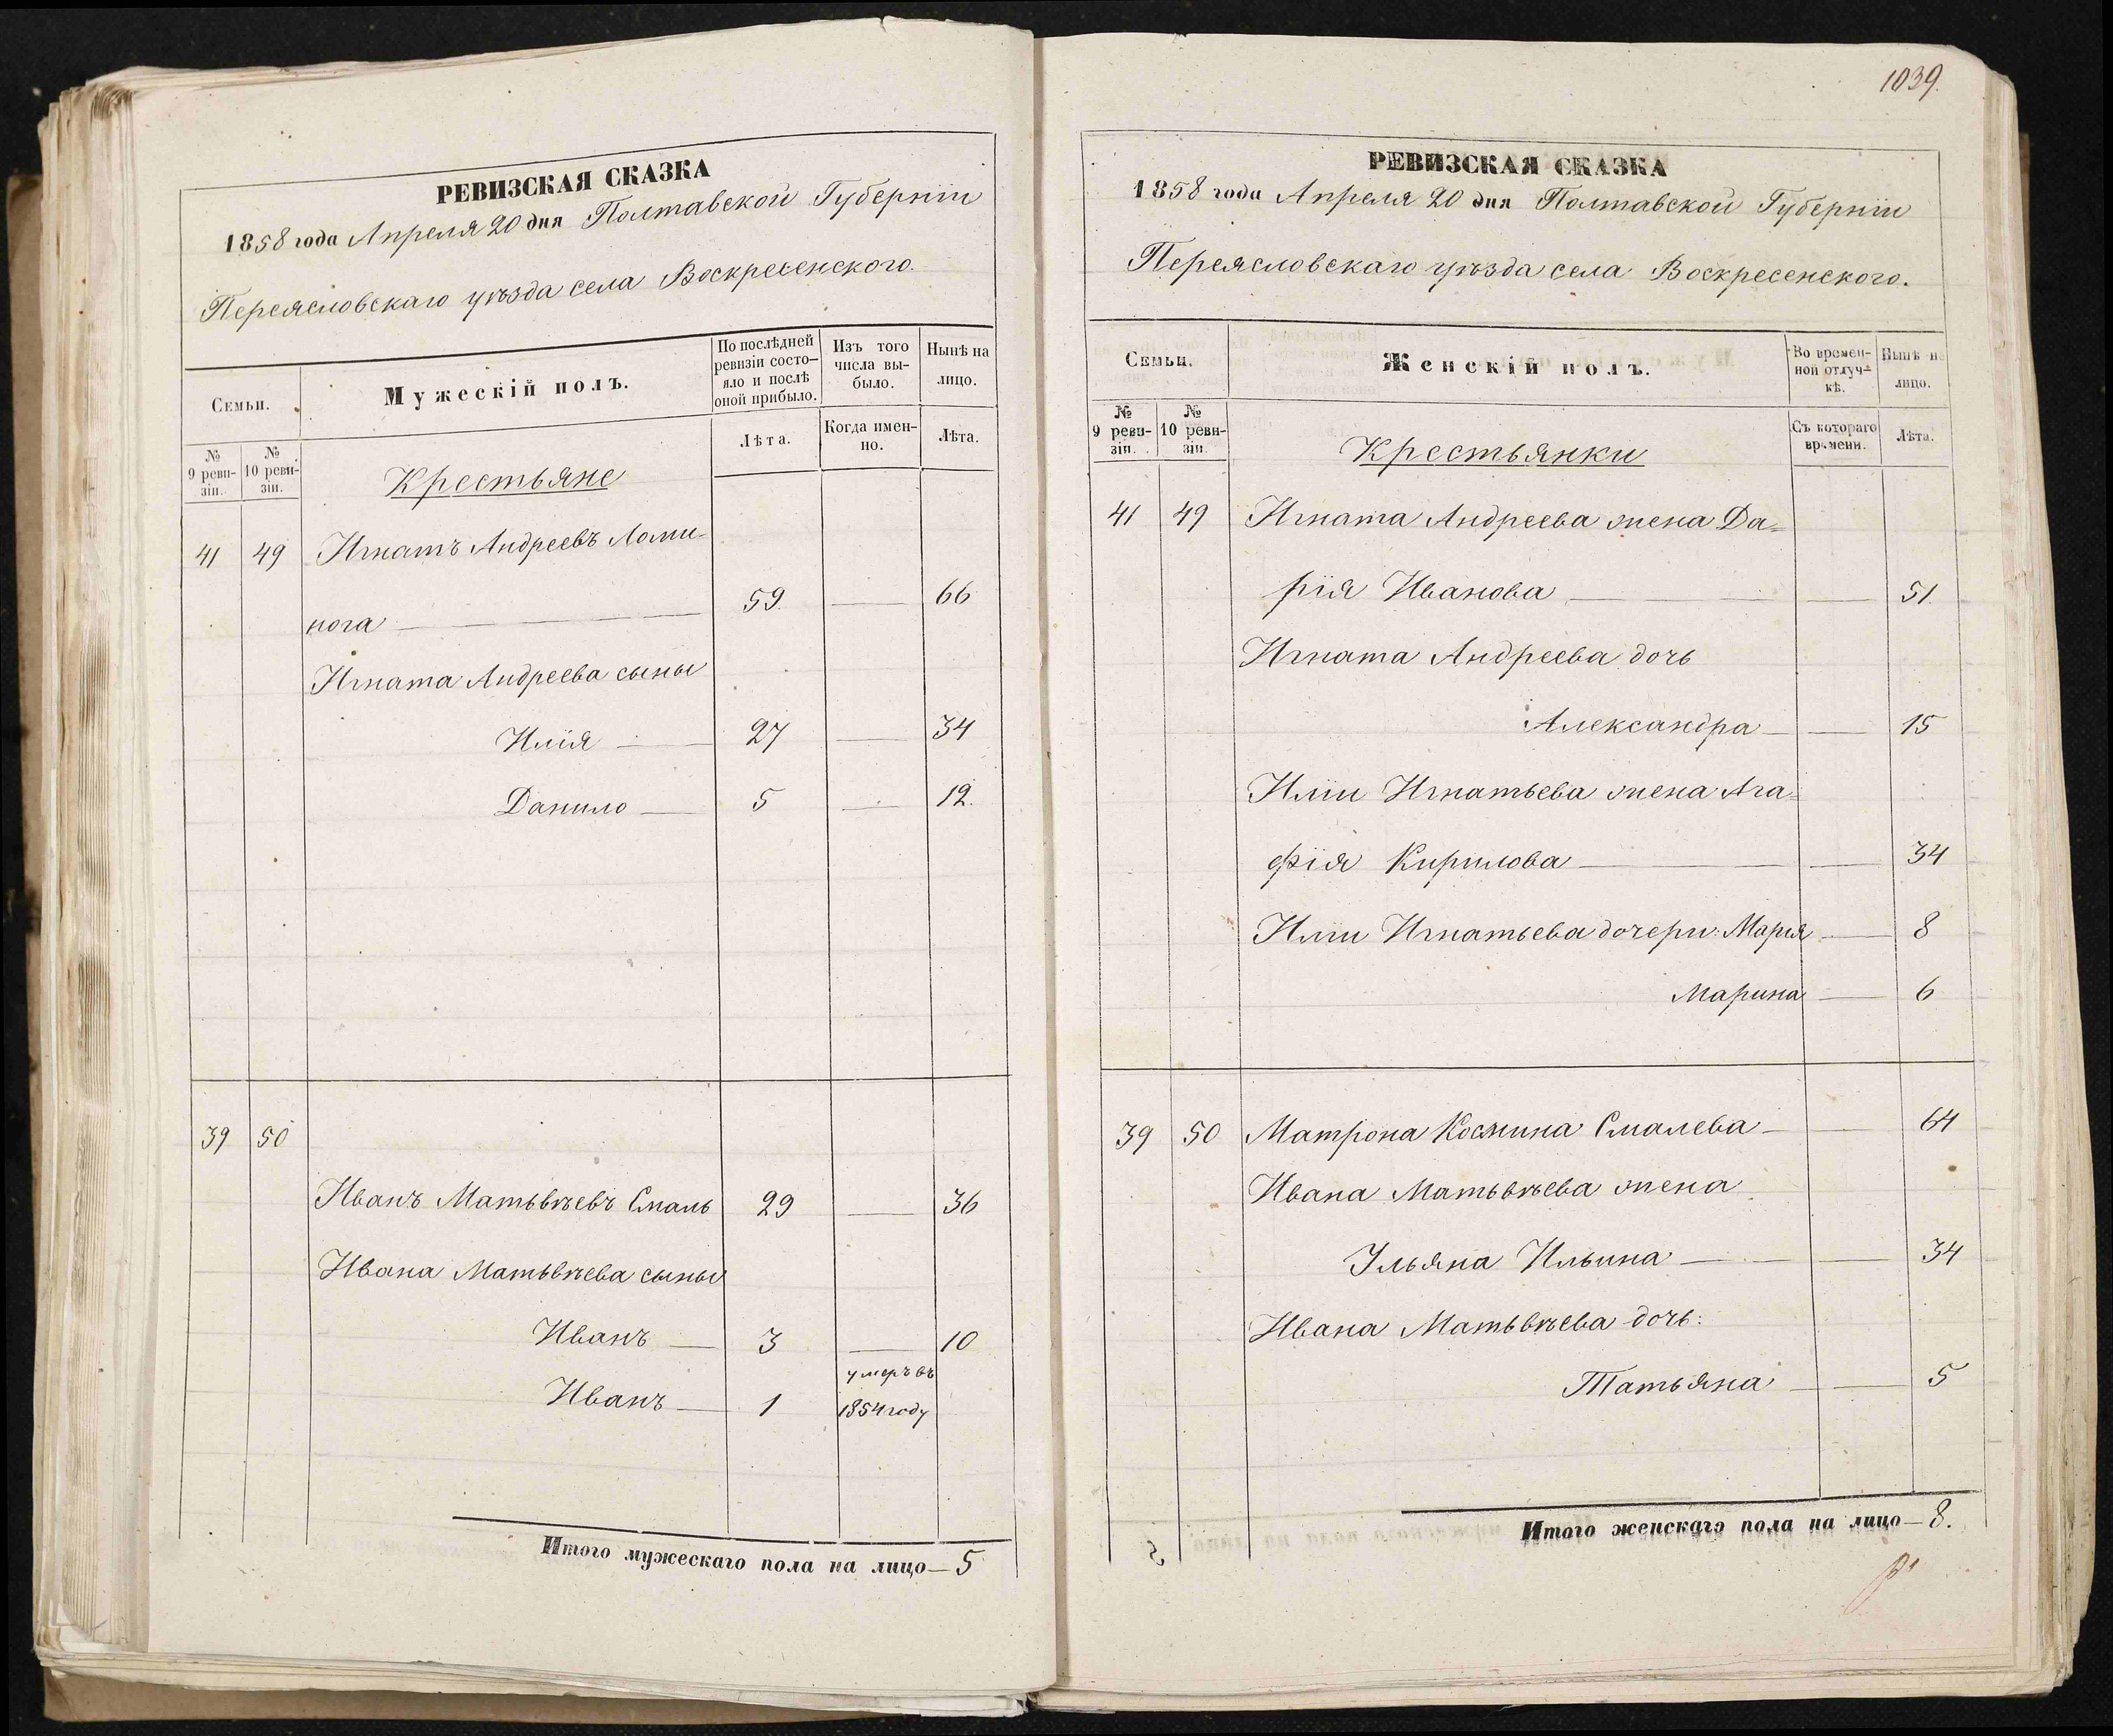 РЕВИЗСКАЯ СКАЗКА
1858 года Апреля 20 дня Полтавской Губерніи
Переясловскаго уѣзда села Воскресенского.
Семьи.
Мужескій полъ.
По послѣдней ревизіи состояло и послѣ оной прибыло.
Изъ того числа выбыло.
Нынѣ на лицо.
№ 9 ревизіи.
№ 10 ревизіи.
Лѣта.
Когда именно.
Лѣта.
Крестьяне
41 49 Игнатъ Андреевъ Ломи-
нога — 59 — 66
Игната Андреева сыны
Илія — 27 — 34
Данило — 5 — 12.
39 50
Иванъ Матьвѣевъ Смаль 29 — 36
Ивана Матьвѣева сыны
Иванъ — 3 — 10
Иванъ — 1 умеръ въ
1854 году
Итого мужескаго пола на лицо — 5
1039.
РЕВИЗСКАЯ СКАЗКА
1858 года Апреля 20 дня Полтавской Губерніи
Переясловскаго уѣзда села Воскресенского.
Семьи.
Женскій полъ.
Во временной отлучкѣ.
Нынѣ на лицо.
№ 9 ревизіи.
№ 10 ревизіи.
Съ котораго времени.
Лѣта.
Крестьянки
41 49 Игната Андреева жена Да=
рія Иванова — — 51.
Игната Андреева дочь
Александра — — 15
Иліи Игнатьева жена Ага=
фія Кирилова — — 34
Иліи Игнатьева дочери: Марія — 8
Марина — 6
39 50 Матрона Космина Смалева — — 64
Ивана Матьвѣева жена
Ульяна Ильина — — 34
Ивана Матьвѣева дочь:
Татьяна — 5
Итого женскаго пола на лицо — 8.